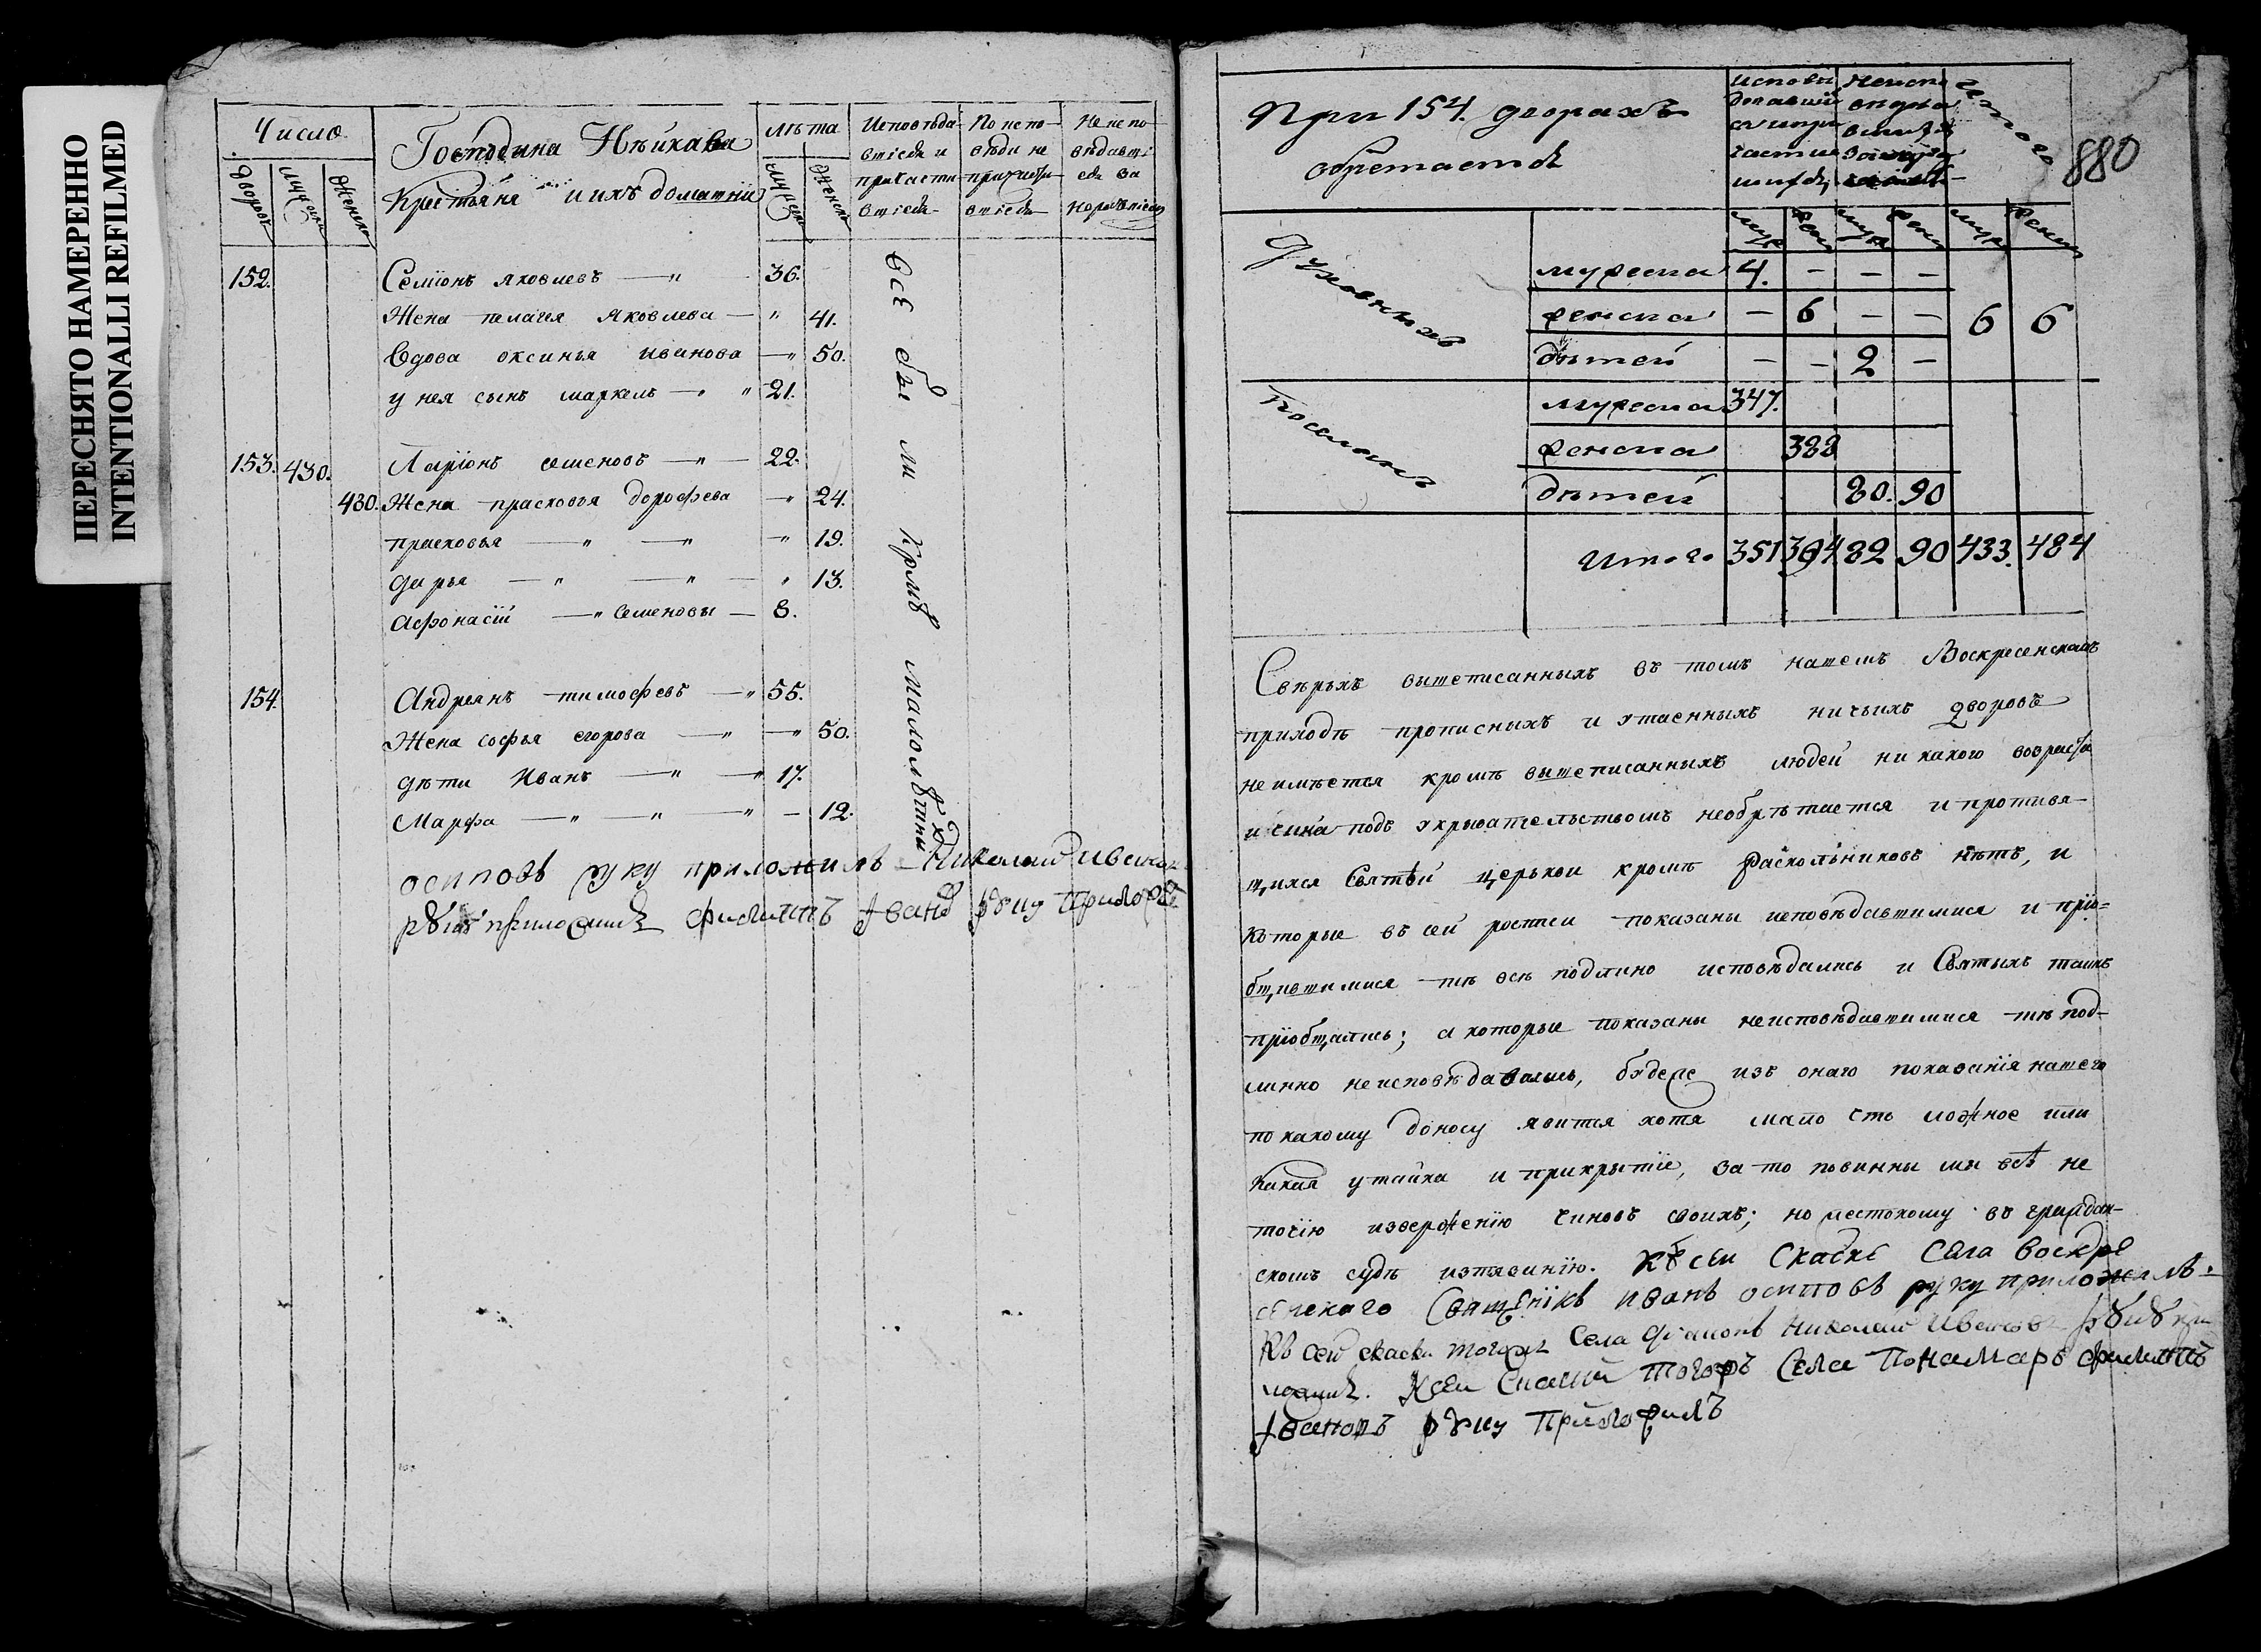 ПЕРЕСНЯТО НАМЕРЕННО
INTENTIONALLI REFILMED
Число
дворовъ мужска женска
Господина
Крестьяня и ихъ домашнии
лѣта
мужска женска
Исповѣда-
вшiеся и
причасти-
вшiеся
По испо-
вѣди не
причасти-
вшiеся
Не испо-
вѣдавшi
еся за
152. Семiонъ яковлевъ — " 36.
Жена пелагея Яковлева — " 41.
Вдова оксинья иванова — " 50.
у нея сынъ маркелъ — " " 21.
153. 430. Ларiонъ семеновъ — " — 22.
430. Жена прасковья дорофева — " 24.
прасковья — " — " — " 19.
дарья — " — " — " 13.
афонасiй — " Семеновы — 8.
154. Андреянъ тимофевъ — " 55.
Жена софья егорова — " — " 50.
дѣти Иванъ — " — " 17.
Марфа — " — " — " — 12.
Всѣ были кромѣ малолѣтных
осиповъ руку приложилъ Николай Иванов
руку приложилъ филиппъ Iванов руку приложилъ
880
При 154. дворахъ
обретается
Исповѣ
давши
ся и при
части
вшихся
Неиспо
ведыва
вшихся
Итого
муж жен муж жен муж женск
Духовныхъ
мужеска 4. — — —
женска — 6 — — 6 6
дѣтей — — 2 —
Поселянъ
мужеска 347.
женска 388
дѣтей 80. 90
Итого 351 394 82 90 433. 484
Сверьхъ вышеписанныхъ въ томъ нашемъ Воскресенскомъ
приходѣ прописныхъ и утаенныхъ ничьихъ дворовъ
не имѣется кромѣ вышеписанныхъ людей никакого возраста
и чина подъ укрывательствомъ необрѣтается и противя-
щихся Святѣй церькви кромѣ раскольниковъ нѣтъ, и
которые въ сей росписи показаны исповѣдавшимися и прiо=
бщившимися тѣ всѣ подлино исповѣдались и Святыхъ таинъ
прiобщались; а которые показаны неисповѣдавшимися тѣ под-
линно неисповѣдавались, будеже изъ онаго показанiя нашего
по какому доносу явится хотя мало что ложное или
какая утайка и прикрытiе, за то повинны мы всѣ не
точiю извержению чиновъ своихъ; но жестокому въ граждан-
скомъ судѣ истязанiю. Къ сеи скаске села воскре
сенскаго Священiкъ иванъ осиповъ руку приложилъ.
Къ сей скаски тогожъ села дiаконъ Николай Ивановъ руку при
ложилъ. К сеи скаски тогожъ села Понамарь филиппъ
Iвановъ руку приложилъ